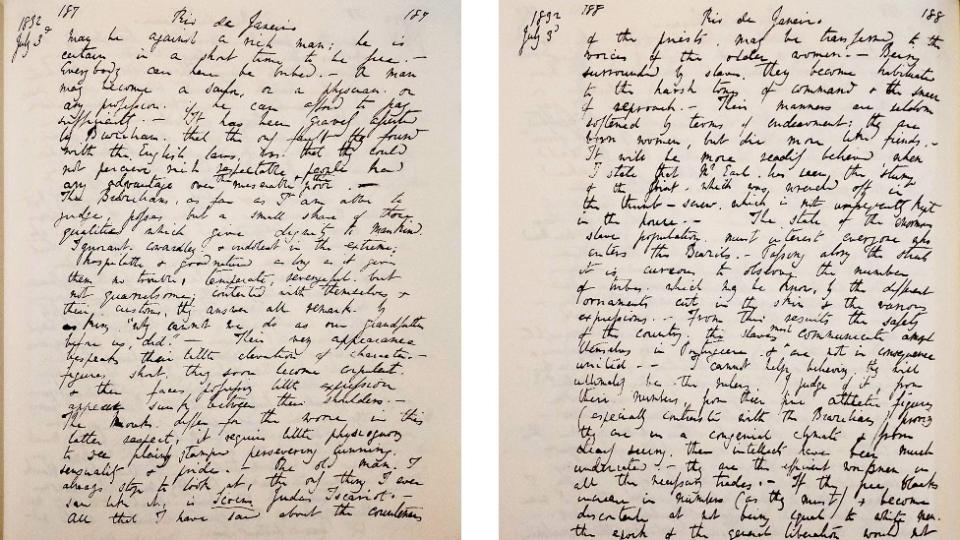 187 Rio de Janeiro 187
1832
July 3d
may be against a rich man; he is
certain in a short time to be free. —
Everybody can here be bribed. — A man
may become a sailor, or a physician or
any profession. if he can afford to pay
sufficiently. — It has been gravely asserted
by Brazilians. that the only fault they found
with the English laws, was that they could
not perceive rich respectable people had
any advantage over the miserable & the poor. —
The Brazilians, as far as I am able to
judge, possess but a small share of those
qualities which give dignity to mankind.
Ignorant. cowardly & indolent in the extreme;
hospitable & good natured as long as it gives
them no trouble; temperate, revengeful. but
not quarrelsome; contented with themselves &
their customs, they answer all remarks by
asking "why cannot we do as our grandfathers
before us did." — Their very appearance
bespeaks their little elevation of character. —
figures short, they soon become corpulent.
& their faces possessing little expression
appear sunk between their shoulders. —
The Monks differ for the worse in this
latter respect; it requires little physiognomy
to see plainly stamped persevering cunning.
sensuality & pride. — One old man. I
always stop to look at, the only thing I ever
saw like it, is Judas Iscariot. —
All that I have said about the countenances
188 Rio de Janeiro 188
1832
July 3d
of the priests. may be transferred to the
voices of the older women. — Being
surrounded by slaves. they become habituated
to the harsh tones of command & the sneer
of reproach. — Their manners are seldom
softened by terms of endearment; they are
born women, but die more like fiends. —
It will be more readily believed when
I state that Mr Earl. has seen the stump
of the joint. which was wrenched off in
the thumb-screw. which is not unfrequently kept
in the house. — The state of the enormous
slave population. must interest everyone who
enters the Brazils. — Passing along the streets
it is curious to observe the numbers
of tribes. which may be known by the different
ornaments cut in the skin & the various
expressions. — From this results the safety
of the country. the slaves must communicate amongst
themselves in Portuguese & are not in consequence
united. — I cannot help believing they will
ultimately be the rulers. I judge of it from
their numbers, from their fine athletic figures
(especially contrasted with the Brazilians) proving
they are in a congenial climate & from
clearly seeing their intellects have been much
underrated. — they are the efficient workmen in
all the necessary trades. — If the free blacks
increase in numbers (as they must) & become
discontented at not being equal to white men.
the epoch of the general liberation would not